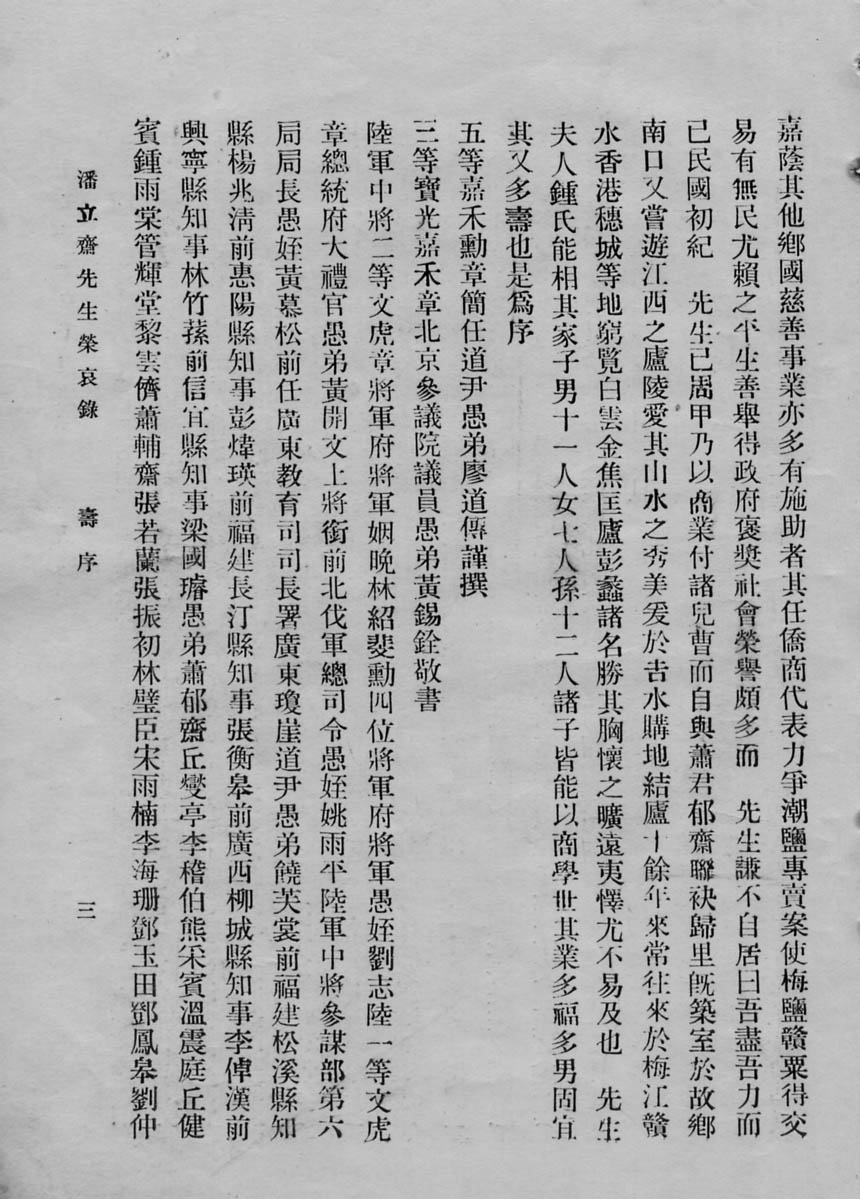 嘉蔭其他鄉國慈善事業亦多有施助者其任僑商代表力爭潮鹽專賣案使梅鹽贛粟得交
易有無民尤賴之平生善舉得政府褒獎社會榮譽頗多而　先生謙不自居曰吾盡吾力而
已民國初紀　先生已周甲乃以商業付諸兒曹而自與蕭君郁齋聯袂歸里旣築室於故鄉
南口又嘗遊江西之廬陵愛其山水之秀美爰於吉水購地結廬十餘年來常往來於梅江贛
水香港穗城等地窮覽白雲金焦匡廬彭蠡諸名勝其胸懷之曠遠夷懌尤不易及也　先生
夫人鍾氏能相其家子男十一人女七人孫十二人諸子皆能以商學世其業多福多男固宜
其又多壽也是爲序
五等嘉禾勳章簡任道尹愚弟廖道傳謹撰
三等寶光嘉禾章北京參議院議員愚弟黃錫銓敬書
陸軍中將二等文虎章將軍府將軍姻晚林紹斐勳四位將軍府將軍愚姪劉志陸一等文虎
章總統府大禮官愚弟黃開文上將銜前北伐軍總司令愚姪姚雨平陸軍中將參謀部第六
局局長愚姪黃慕松前任廣東教育司司長署廣東瓊崖道尹愚弟饒芙裳前福建松溪縣知
縣楊兆淸前惠陽縣知事彭煒瑛前福建長汀縣知事張衡皋前廣西柳城縣知事李倬漢前
興寧縣知事林竹蓀前信宜縣知事梁國璿愚弟蕭郁齋丘燮亭李稽伯熊采賓溫震庭丘健
賓鍾雨棠管輝堂黎雲儕蕭輔齋張若蘭張振初林璧臣宋雨楠李海珊鄧玉田鄧鳳皋劉仲
潘立齋先生榮哀錄　壽序　三